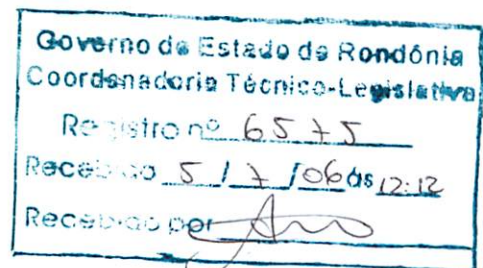 Governo do Estado de Rondônia
Coordenadoria Técnico-Legislativa
Registro nº 6575
Recebido 5 / 7 /06 às 12:12
Recebido por